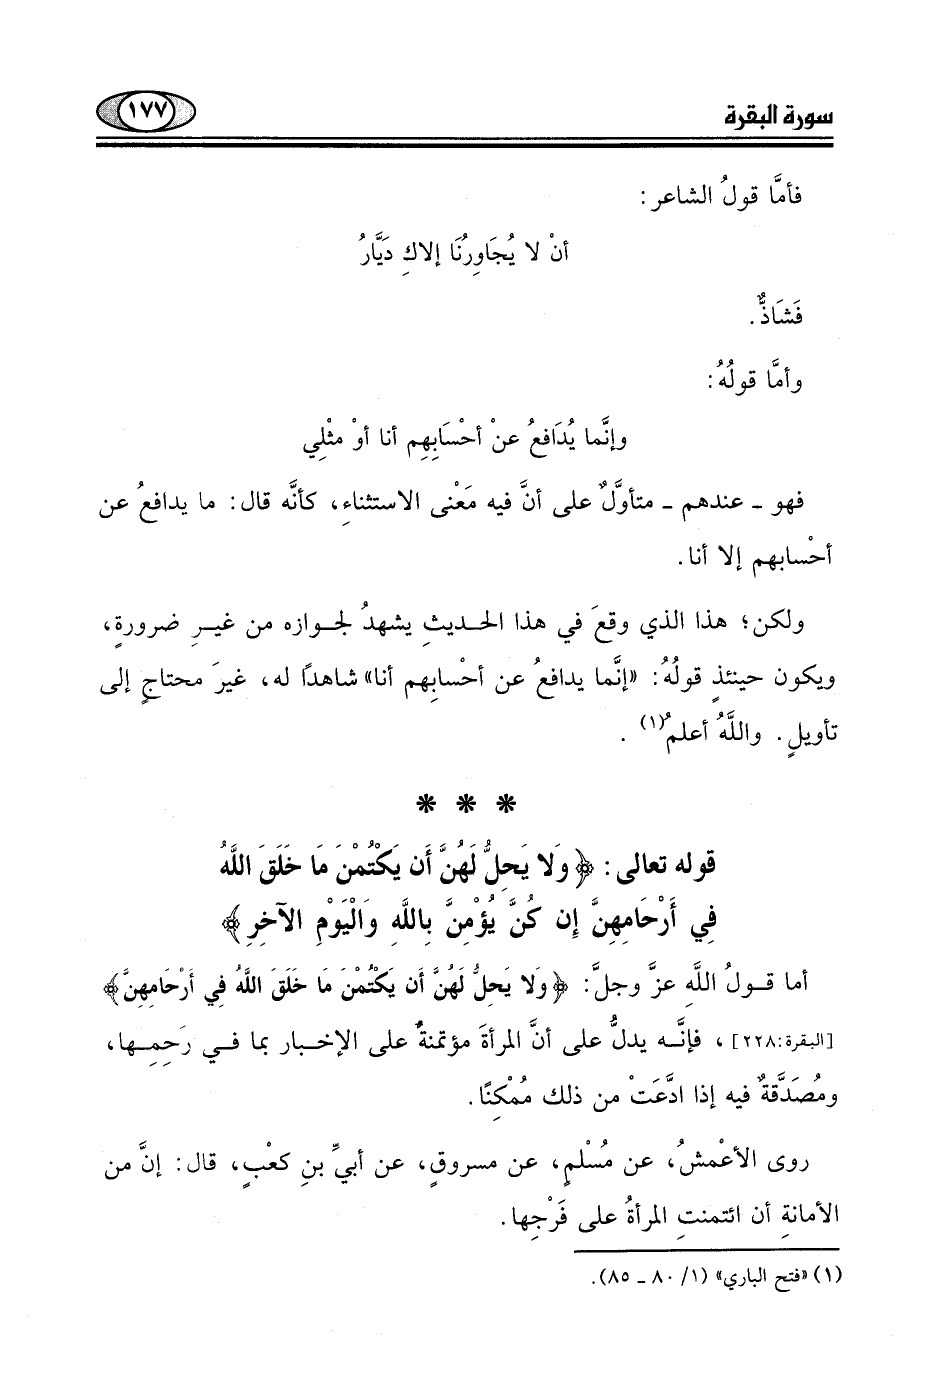 سورة البقرة ١٧٧
فأمَّا قولُ الشاعر:
أنْ لا يُجَاوِرُنَا إلاكِ دَيَّارُ
فَشَاذٌّ.
وأمَّا قولُهُ:
وإنَّما يُدَافعُ عنْ أحْسَابِهِم أنا أوْ مثْلِي
فهو ـ عندهم ـ متأولٌ على أنَّ فيه مَعْنى الاستثناءِ، كأنَّه قال: ما يدافعُ عن
أحْسابهم إلا أنا.
ولكن؛ هذا الذي وقعَ في هذا الحديثِ يشهدُ لجوازه من غيرِ ضرورةٍ،
ويكون حينئذٍ قولُهُ: «إنَّما يدافعُ عن أحْسابِهم أنا» شاهدًا له، غيرَ محتاجٍ إلى
تأويلٍ. واللَّهُ أعلمُ(١).
* * *
قوله تعالى: ﴿وَلا يَحِلُّ لَهُنَّ أَن يَكْتُمْنَ مَا خَلَقَ اللَّهُ
فِي أَرْحَامِهِنَّ إِن كُنَّ يُؤْمِنَّ بِاللَّهِ وَالْيَوْمِ الآخِرِ﴾
أما قولُ اللَّهِ عزَّ وجلَّ: ﴿وَلا يَحِلُّ لَهُنَّ أَن يَكْتُمْنَ مَا خَلَقَ اللَّهُ فِي أَرْحَامِهِنَّ﴾
[البقرة:٢٢٨]، فإنَّه يدلُّ على أنَّ المرأةَ مؤتمنةٌ على الإخبار بما في رَحِمِها،
ومُصَدَّقةٌ فيه إذا ادَّعَتْ من ذلك مُمْكِنًا.
روى الأعْمشُ، عن مُسْلمٍ، عن مسروقٍ، عن أبيِّ بنِ كعْبٍ، قال: إنَّ من
الأمانةِ أن ائتمنتِ المرأةُ على فَرْجِها.
(١) «فتح الباري» (١/ ٨٠ ـ ٨٥).